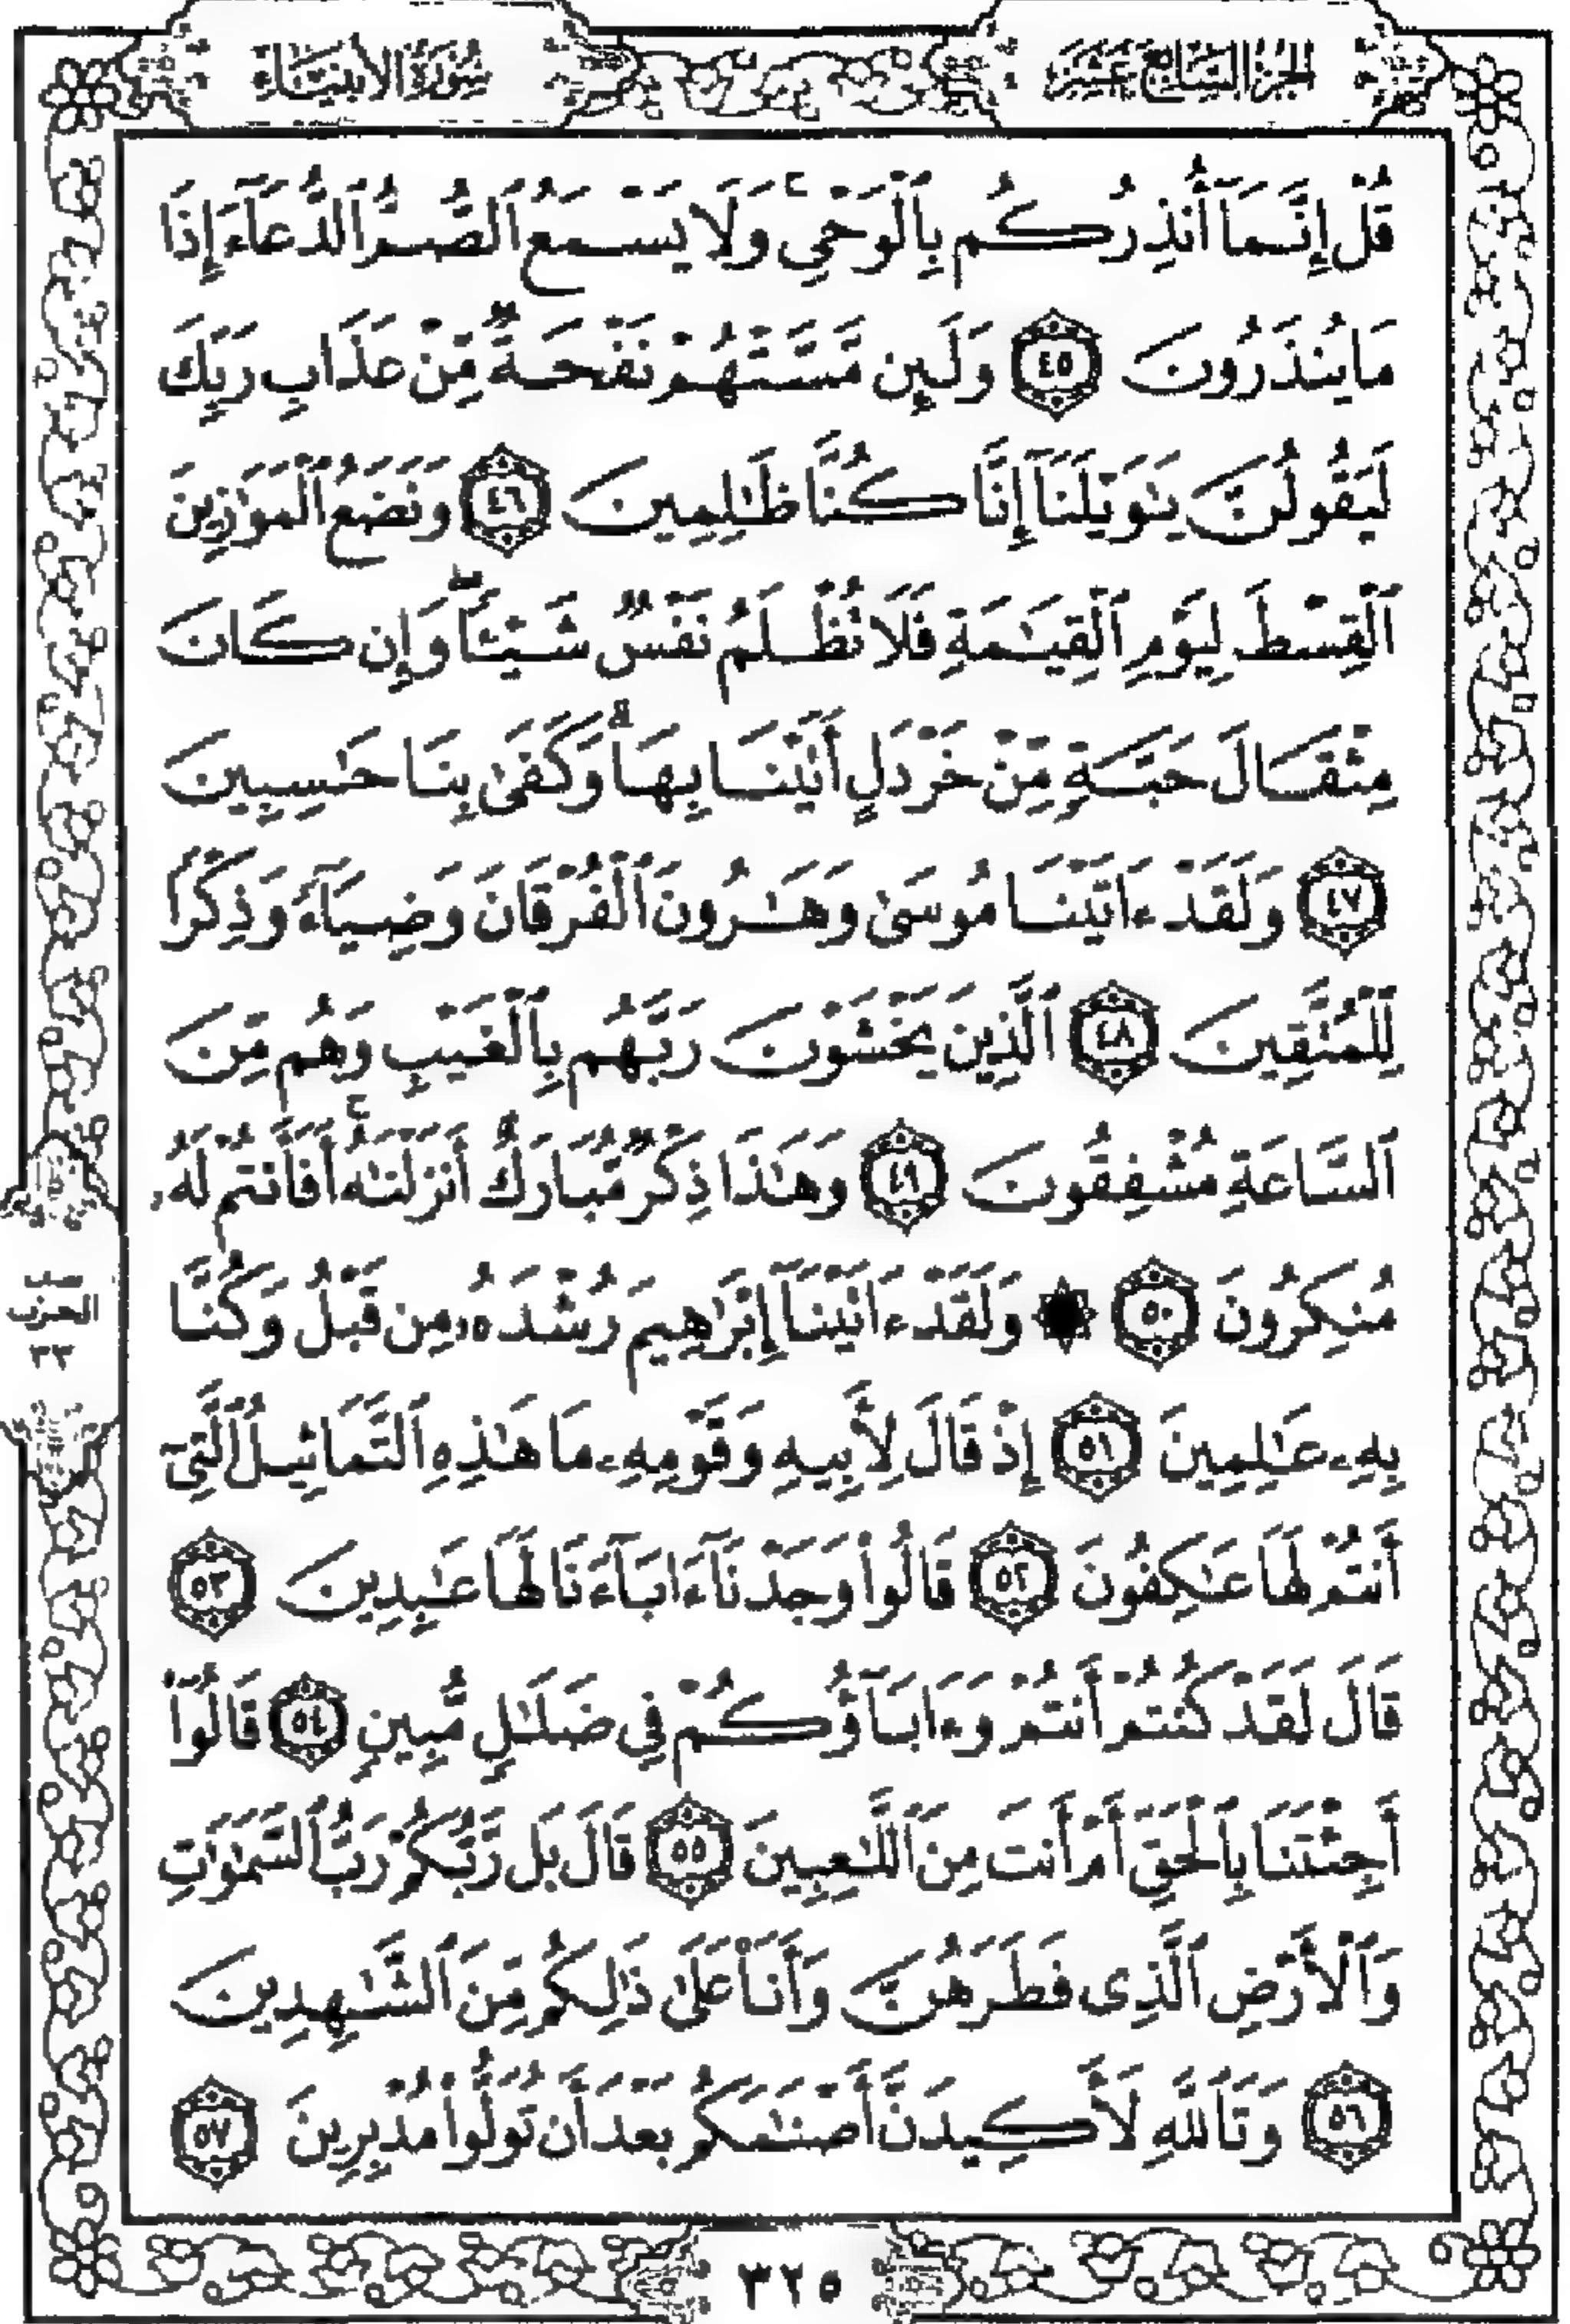 الجزء السابع عشر
سورة الأنبياء
قُلْ إِنَّمَآ أُنذِرُكُم بِٱلْوَحْىِ ۚ وَلَا يَسْمَعُ ٱلصُّمُّ ٱلدُّعَآءَ إِذَا
مَا يُنذَرُونَ ﴿٤٥﴾ وَلَئِن مَّسَّتْهُمْ نَفْحَةٌ مِّنْ عَذَابِ رَبِّكَ
لَيَقُولُنَّ يَـٰوَيْلَنَآ إِنَّا كُنَّا ظَـٰلِمِينَ ﴿٤٦﴾ وَنَضَعُ ٱلْمَوَٰزِينَ
ٱلْقِسْطَ لِيَوْمِ ٱلْقِيَـٰمَةِ فَلَا تُظْلَمُ نَفْسٌ شَيْـًٔا ۖ وَإِن كَانَ
مِثْقَالَ حَبَّةٍ مِّنْ خَرْدَلٍ أَتَيْنَا بِهَا ۗ وَكَفَىٰ بِنَا حَـٰسِبِينَ
﴿٤٧﴾ وَلَقَدْ ءَاتَيْنَا مُوسَىٰ وَهَـٰرُونَ ٱلْفُرْقَانَ وَضِيَآءً وَذِكْرًا
لِّلْمُتَّقِينَ ﴿٤٨﴾ ٱلَّذِينَ يَخْشَوْنَ رَبَّهُم بِٱلْغَيْبِ وَهُم مِّنَ
ٱلسَّاعَةِ مُشْفِقُونَ ﴿٤٩﴾ وَهَـٰذَا ذِكْرٌ مُّبَارَكٌ أَنزَلْنَـٰهُ ۚ أَفَأَنتُمْ لَهُۥ
مُنكِرُونَ ﴿٥٠﴾ ۞ وَلَقَدْ ءَاتَيْنَآ إِبْرَٰهِيمَ رُشْدَهُۥ مِن قَبْلُ وَكُنَّا
بِهِۦ عَـٰلِمِينَ ﴿٥١﴾ إِذْ قَالَ لِأَبِيهِ وَقَوْمِهِۦ مَا هَـٰذِهِ ٱلتَّمَاثِيلُ ٱلَّتِىٓ
أَنتُمْ لَهَا عَـٰكِفُونَ ﴿٥٢﴾ قَالُوا۟ وَجَدْنَآ ءَابَآءَنَا لَهَا عَـٰبِدِينَ ﴿٥٣﴾
قَالَ لَقَدْ كُنتُمْ أَنتُمْ وَءَابَآؤُكُمْ فِى ضَلَـٰلٍ مُّبِينٍ ﴿٥٤﴾ قَالُوٓا۟
أَجِئْتَنَا بِٱلْحَقِّ أَمْ أَنتَ مِنَ ٱللَّـٰعِبِينَ ﴿٥٥﴾ قَالَ بَل رَّبُّكُمْ رَبُّ ٱلسَّمَـٰوَٰتِ
وَٱلْأَرْضِ ٱلَّذِى فَطَرَهُنَّ وَأَنَا۠ عَلَىٰ ذَٰلِكُم مِّنَ ٱلشَّـٰهِدِينَ
﴿٥٦﴾ وَتَٱللَّهِ لَأَكِيدَنَّ أَصْنَـٰمَكُم بَعْدَ أَن تُوَلُّوا۟ مُدْبِرِينَ ﴿٥٧﴾
الحزب
٣٢٥